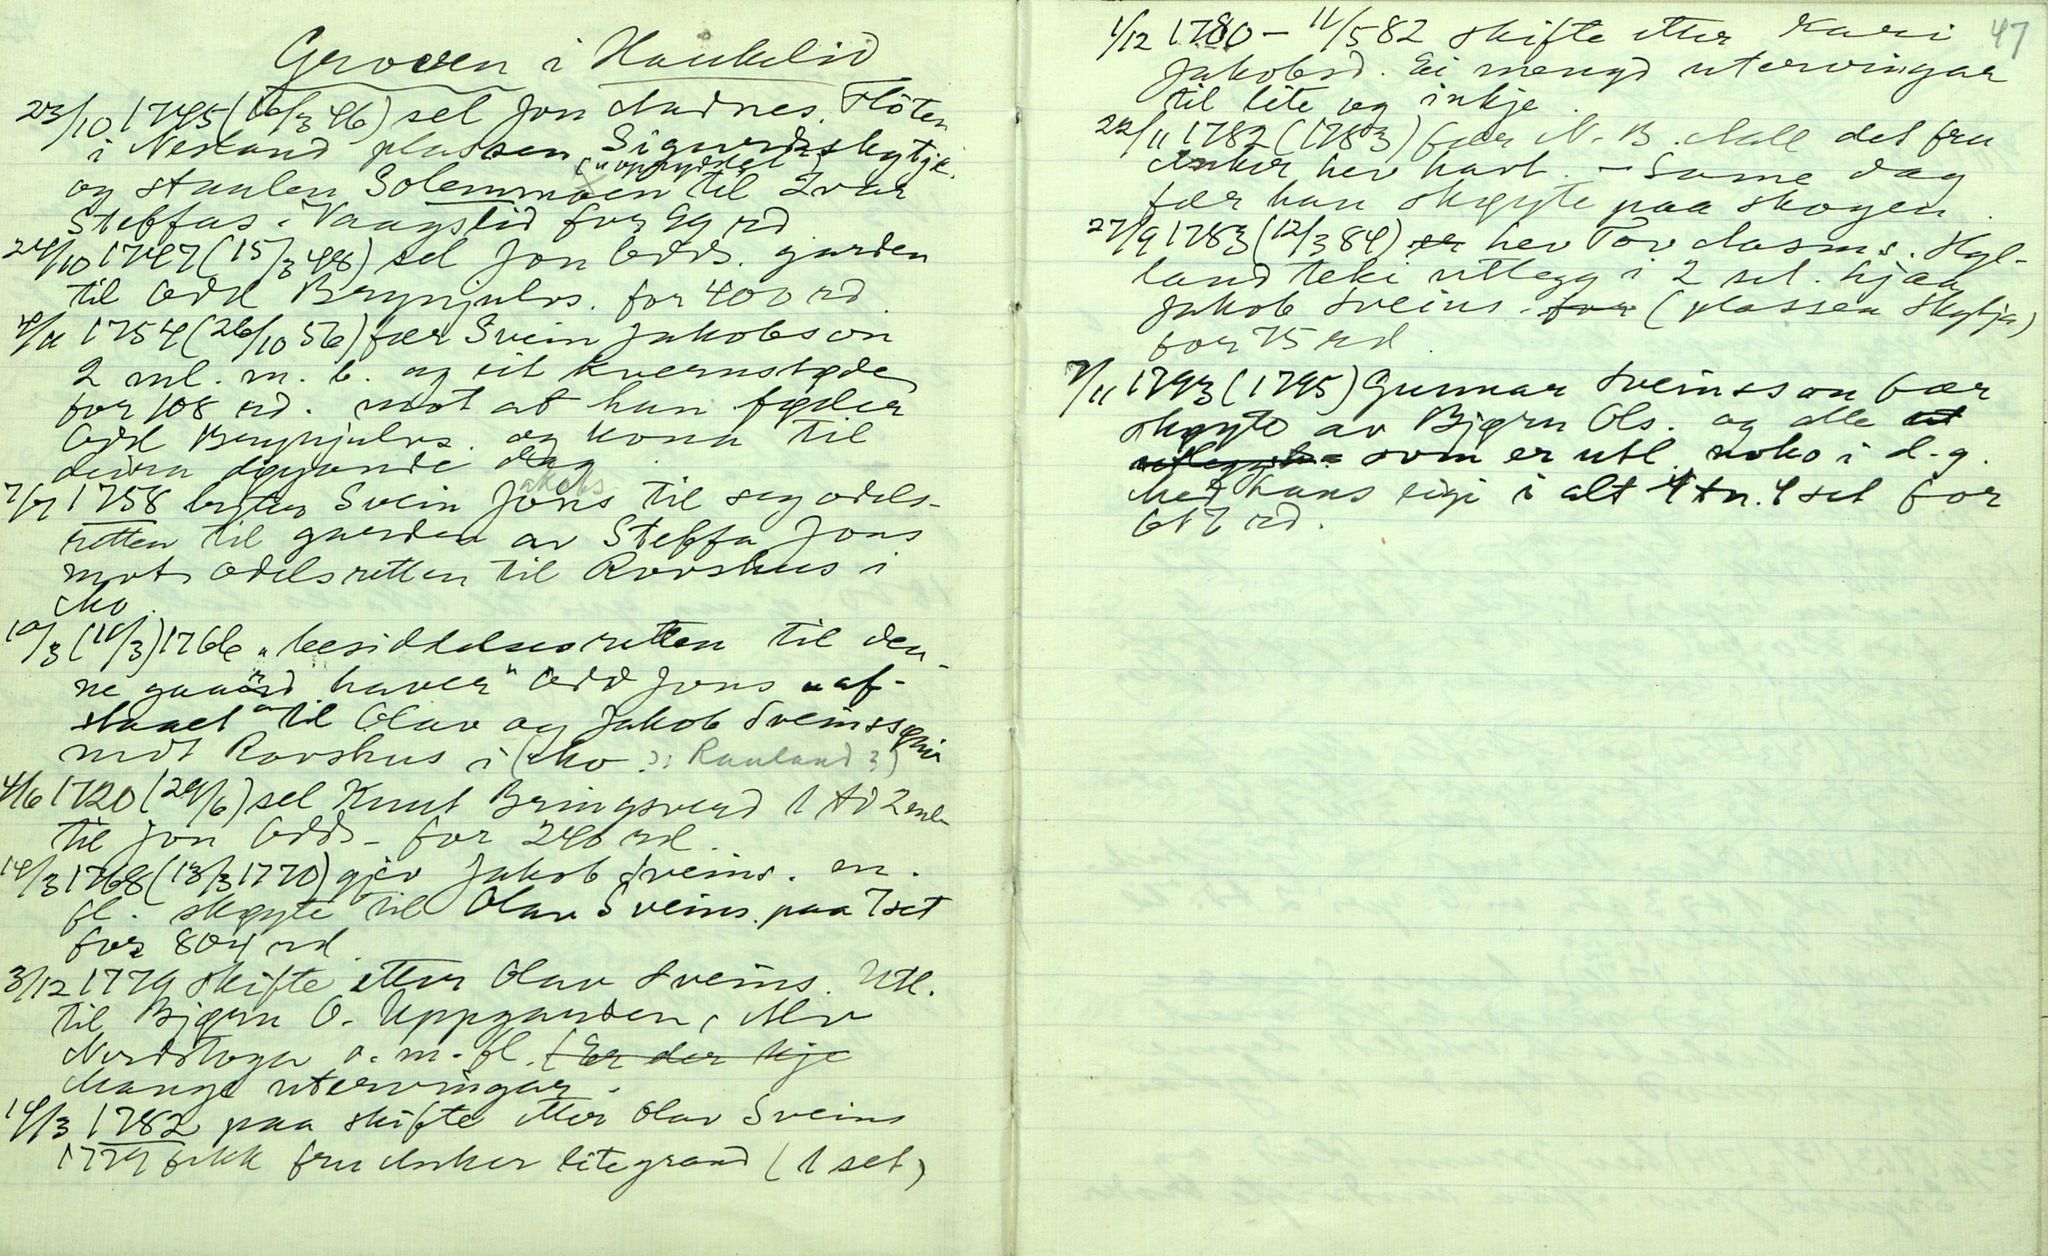 Groven i Haukelid
23/10 1745 (16/3 46) sel Jon Aadnes. Flöten
i Nesland plassen Sigurdskytja
("uppryddet")
og staulen Solemmoen til Ivar
Steffas i Vaagslid for 99 rd
24/10 1747 (15/3 48) sel Jon Odds. garden
til Odd Brynjulvs. for 400 rd
4/11 1754 (26/10 56) fær Svein Jakobson
2 ml. m. b. og eit kvernstøde
for 108 rd. mot at han føder
Odd Brynjulvs. og kona til
deira døyande dag
7/7 1758 byter Svein Jons til seg odels-
akobs
retten til garden av Steffa Jons
mot odelsretten til Rovshus i
Mo.
10/3 (11/3) 1766 "besiddelsesretten til den-
ne gaard haver" Odd Jons "af-
staaet" til Olav og Jakob Sveinssøner
mot Rovshus i (Mo?: Rauland?)
4/6 1720 (24/6) sel Knut Bringsverd 1 td 2 ml
til Jon Odds - for 240 rd.
14/3 1768 (13/3 1770) gjev Jakob Sveins. m.
fl. skøyte til Olav Sveins. paa 7 set
for 804 rd
3/12 1779 skifte etter Olav Sveins. Utl.
til Bjørn O. Uppgarden, Alv
Nordstoga o. m. fl. (Er der kje
Mange utervingar.
14/3 1782 paa skifte etter Olav Sveins
1779 fekk fru Anker litegrand (1 set)
47
1/12 1780 - 11/5 82 skifte etter Kari
Jakobsd. Ei mengd utervingar
til lite og inkje.
22/11 1782 (1783) fær N. B. Aall det fru
Anker hev havt. - Same dag
fær han skøyte paa skogen.
27/9 1783 (12/3 84) er hev Tov Aasms. Hyl-
land teki utlegg i 2 set. hjaa
Jakob Sveins. for (plassen Skytja)
for 75 rd.
7/11 1793 (1795) Gunnar Sveinsson fær
skøyte av Bjørn Ols. og alle ut
som er utl. noko i d. g.
Med hans eigi i alt 4 tn. 4 set for
617 rd.